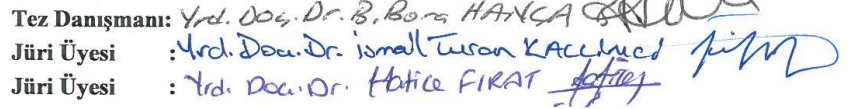 Tez Danışmanı: Yrd. Doç. Dr. B. Bora HANÇA
Jüri Üyesi : Yrd. Doc. Dr. İsmail Turan
Jüri Üyesi : Yrd. Doc. Dr. Hatice FIRAT